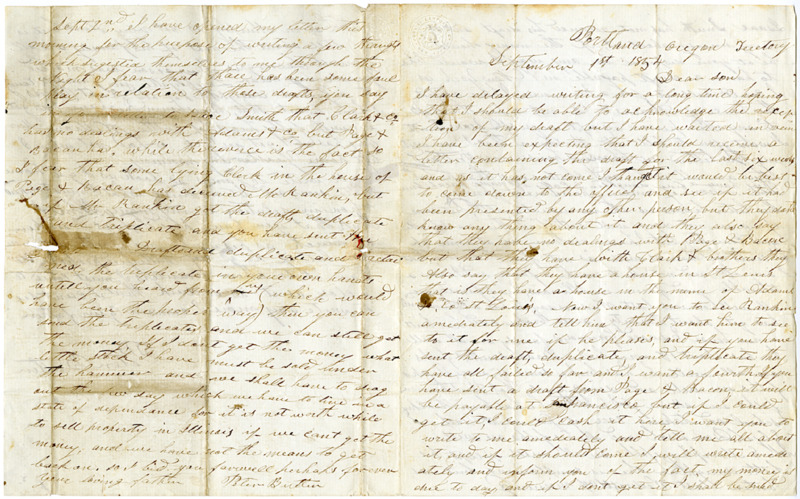 Sept 2nd I have opened my letter this
morning for the purpose of writing a few things
which suggested themselves to me through the
night I fear that there has been some foul
play in relation to these drafts, you say
Smith that Clark & Co
has no dealings with Adams & Co, but Page &
Bacan has, while the reverse is the fact so
I fear that some lying clerk in the house of
Page & Bacan has deceived Mr Rankin, but
if Mr Rankin got the draft, duplicate
and triplicate and you have sent
Draft and duplicate and
the triplicate in your own hands
until you heard from me (which would
have been the proper way) then you can
send the triplicate and we can still get
the money. If I dont get the money what
little stock I have must be sold under
the hammer and we shall have to drag
out the few days which we have to live in a
state of dependance for it is not worth while
to sell property in Illinois if we cant get the
money, and we have not the means to get
back on, so I bid you farewell perhaps forever
your loving father Peter
Portland Oregon Teritory
September 1st 1854
Dear son
I have delayed writing for a long time hoping
that I should be able to acknowledge the recep
tion of my draft but I have waited in vain
I have been expecting that I should receive a
letter containing the draft for the last six weeks
and as it has not come I thought it would be best
to come down to the office and see if it had
been presented by any other person, but they dont
know any thing about it and they also say
that they have no dealings with Page & Bacne
but that they have with Clark & brothers they
Also say that they have a house in St Louis
that is they have a house in the name of Adams
& Co in St Louis. Now I want you to see Rankin
amediately and tell him that I want him to see
to it for me if he pleases, and if you have
sent the draft, duplicate, and triplicate they
have all failed so far and I want a fourth if you
have sent a draft from Page & Bacon, it must
be payable at sanfrancisco but if I could
get it, I could cash it here I want you to
write to me amediately and tell me all about
it, and if it should come I will write amedi
ately and inform you of the fact, my money is
due to day and if I don't get it I shall be sued